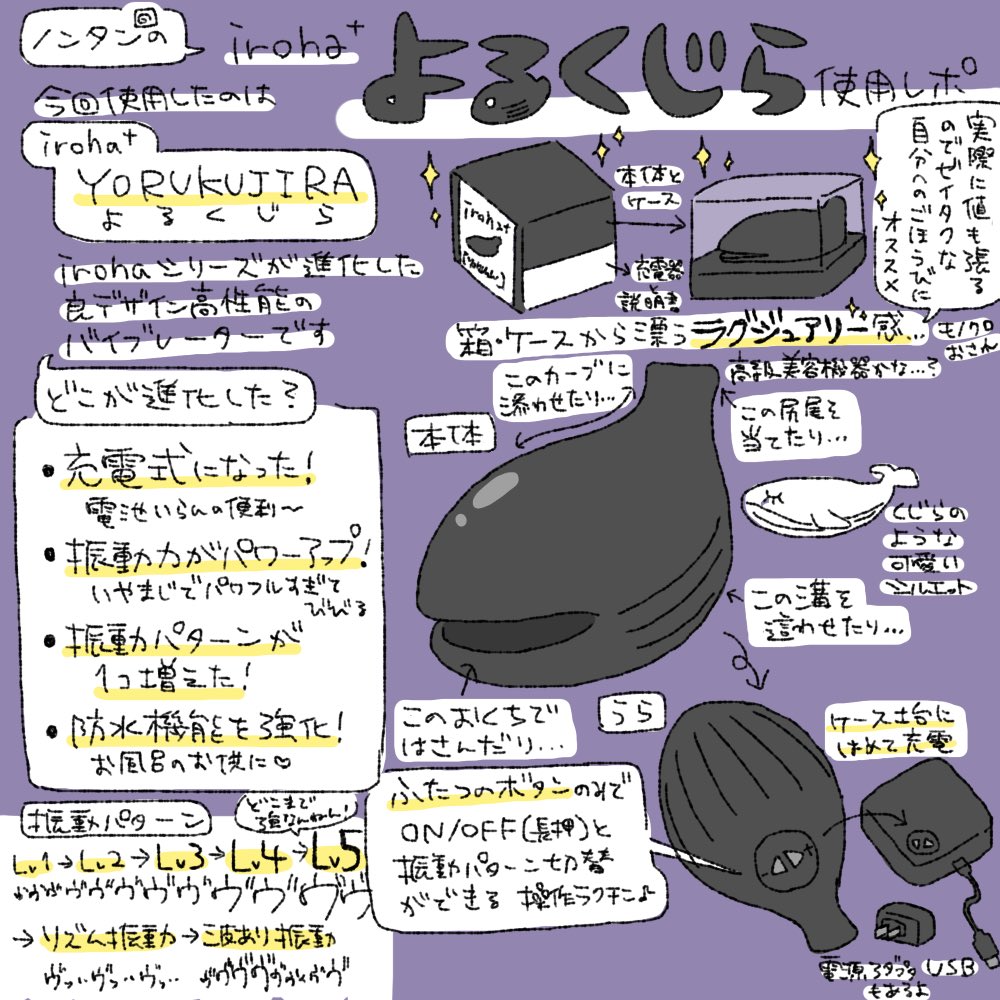 ノンタンの
iroha+
よるくじら
使用レポ
今回使用したのは
iroha+
YORUKUJIRA
よるくじら
irohaシリーズが進化した
良デザイン高性能の
バイブレーターです
どこが進化した?
・充電式になった!
電池いらんの便利〜
・振動力がパワーアップ!
いやまじでパワフルすぎて
びびる
・振動パターンが
1コ増えた!
・防水機能を強化!
お風呂のお供に♡
iroha+
本体と
ケース
充電器
と
説明書
実際に値も張る
のでゼイタクな
自分へのごほうびに
オススメ
箱・ケースから漂うラグジュアリー感…
モノクロ
おさん
高級美容機器かな…?
このカーブに
添わせたり…
本体
この尻尾を
当てたり…
くじらの
ような
可愛い
シルエット
この溝を
這わせたり…
このおくちで
はさんだり…
うら
ケース土台に
はめて充電
ふたつのボタンのみで
ON/OFF(長押)と
振動パターン切替
ができる 操作ラクチン♪
電源アダプタ
もあるよ
USB
振動パターン
どこまで
強なんねん!
Lv1→Lv2→Lv3→Lv4→Lv5
→リズム振動→波あり振動
ヴッ…ヴッ…ヴッ…